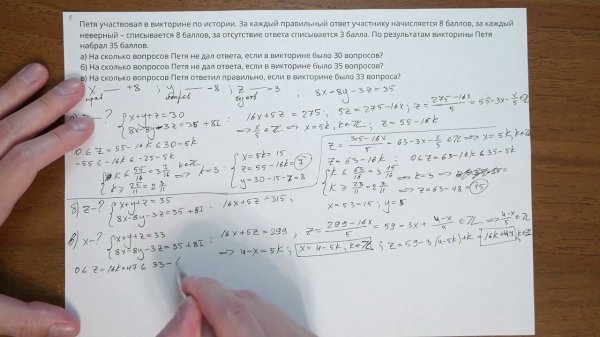 Петя участвовал в викторине по истории. За каждый правильный ответ участнику начисляется 8 баллов, за каждый
неверный – списывается 8 баллов, за отсутствие ответа списывается 3 балла. По результатам викторины Петя
набрал 35 баллов.
а) На сколько вопросов Петя не дал ответа, если в викторине было 30 вопросов?
б) На сколько вопросов Петя не дал ответа, если в викторине было 35 вопросов?
в) На сколько вопросов Петя ответил правильно, если в викторине было 33 вопроса?
x — +8 ; y — -8 ; z — -3 8x-8y-3z=35
z-? { x+y+z=30
8x-8y-3z=35 +8I : 16x+5z=275 ; 5z=275-16x ; z = 275-16x / 5 = 55-3x- x/5 ∈ Z
=> x/5 ∈ Z => x=5k, k∈Z => z=55-16k
0 ≤ z = 55-16k ≤ 30-5k
-55 ≤ -16k ≤ -25-5k
{ k ≤ 55/16 = 3 7/16
k ≥ 25/11 = 2 3/11 => k=3 : { x=5k=15
z=55-16k=7
y=30-15-7=8
б) z-? { x+y+z=35
8x-8y-3z=35 +8I : 16x+5z=315 ;
z = 315-16x / 5 = 63-3x- x/5 ∈ Z => x=5k, k∈Z
z=63-16k : 0 ≤ 63-16k ≤ 35-5k
{ k ≤ 63/16 = 3 15/16
k ≥ 28/11 = 2 6/11 => k=3 => z=63-48=15
в) x-? { x+y+z=33
8x-8y-3z=35 +8I : 16x+5z=299 , z = 299-16x / 5 = 59-3x+ 4-x / 5 ∈ Z => 4-x / 5 ∈ Z
=> 4-x=5k ; x=4-5k, k∈Z ; z=59-3(4-5k)+k = 16k+47, k∈Z
0 ≤ z=16k+47 ≤ 33-